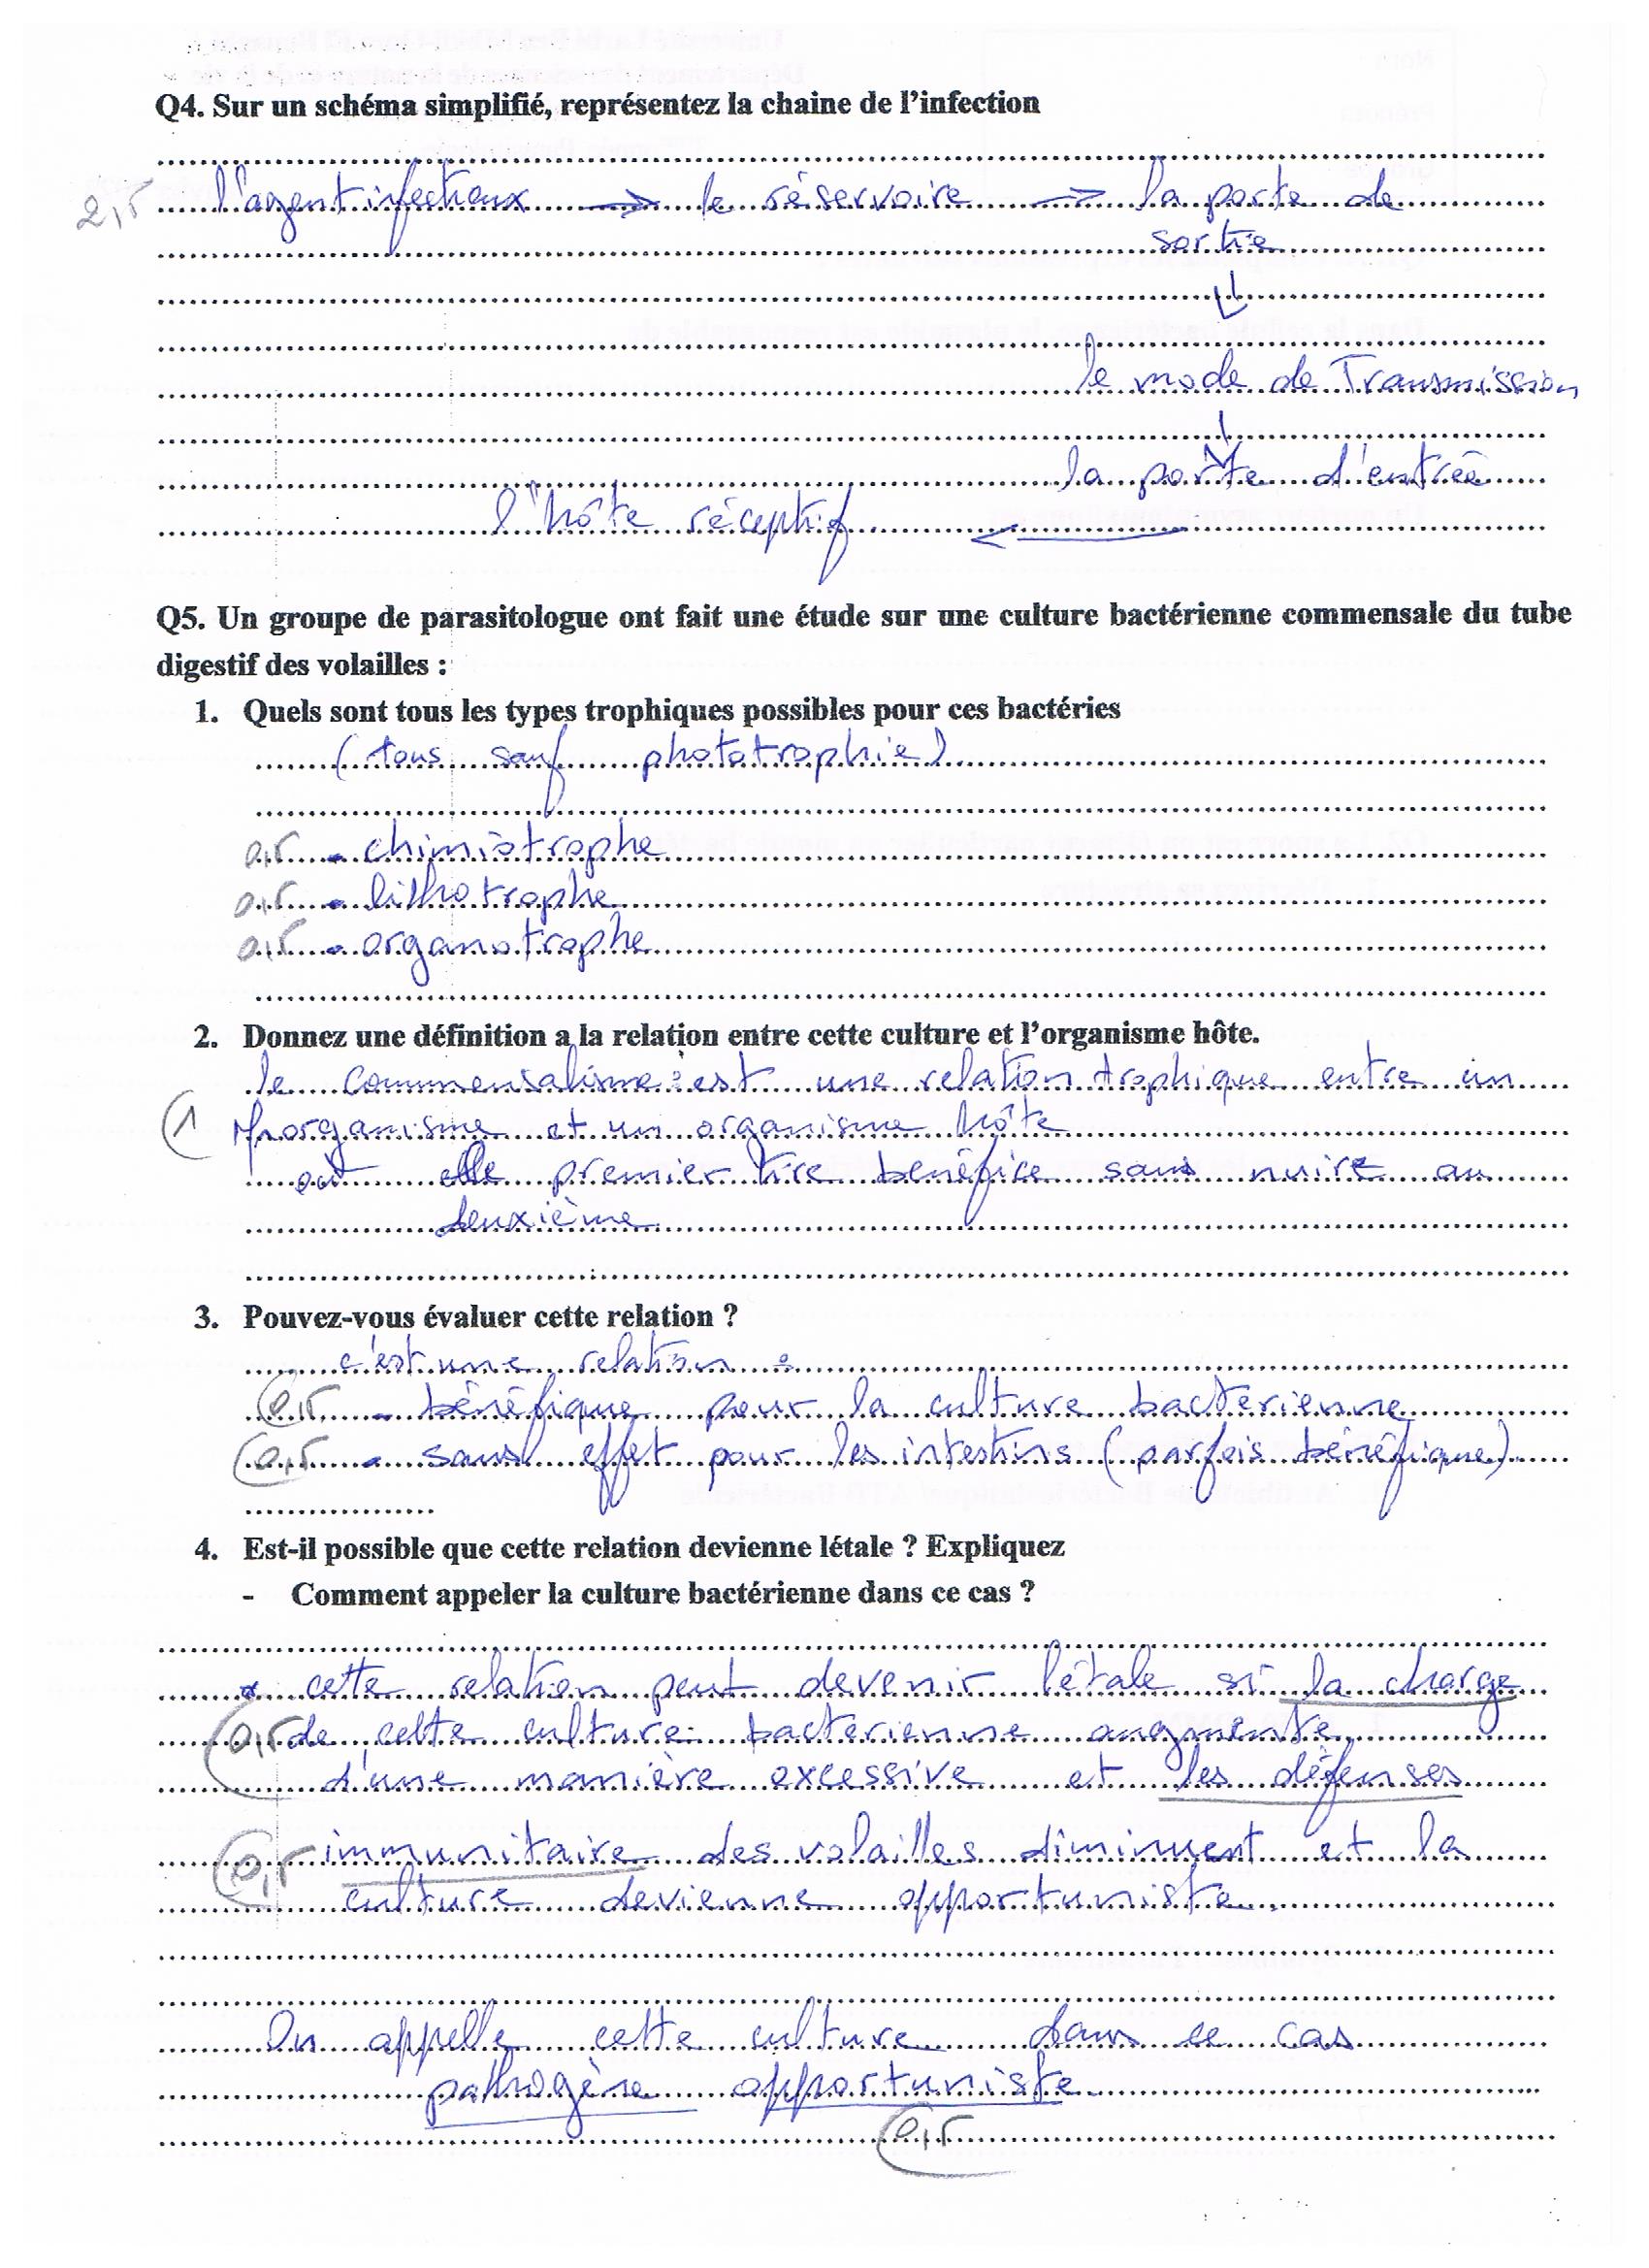 Q4. Sur un schéma simplifié, représentez la chaine de l'infection
2,5 l'agent infectieux → le réservoire → la porte de
sortie
↓
le mode de Transmission
↓
la porte d'entrée
l'hôte réceptif ←
Q5. Un groupe de parasitologue ont fait une étude sur une culture bactérienne commensale du tube
digestif des volailles :
1. Quels sont tous les types trophiques possibles pour ces bactéries
(tous sauf phototrophie)
0,5 - chimiotrophe
0,5 - lithotrophe
0,5 - organotrophe
2. Donnez une définition a la relation entre cette culture et l'organisme hôte.
le commensalisme : est une relation trophique entre un
1 organisme et un organisme hôte
où le premier tire bénéfice sans nuire au
deuxième
3. Pouvez-vous évaluer cette relation ?
c'est une relation :
0,5 - bénéfique pour la culture bactérienne
0,5 - sans effet pour les intestins (parfois bénéfique)
4. Est-il possible que cette relation devienne létale ? Expliquez
- Comment appeler la culture bactérienne dans ce cas ?
* cette relation peut devenir létale si la charge
0,5 de cette culture bacterienne augmente
d'une manière excessive et les défenses
0,5 immunitaire des volailles diminuent et la
culture devienne opportuniste.
On appelle cette culture dans ce cas
pathogène opportuniste.
0,5